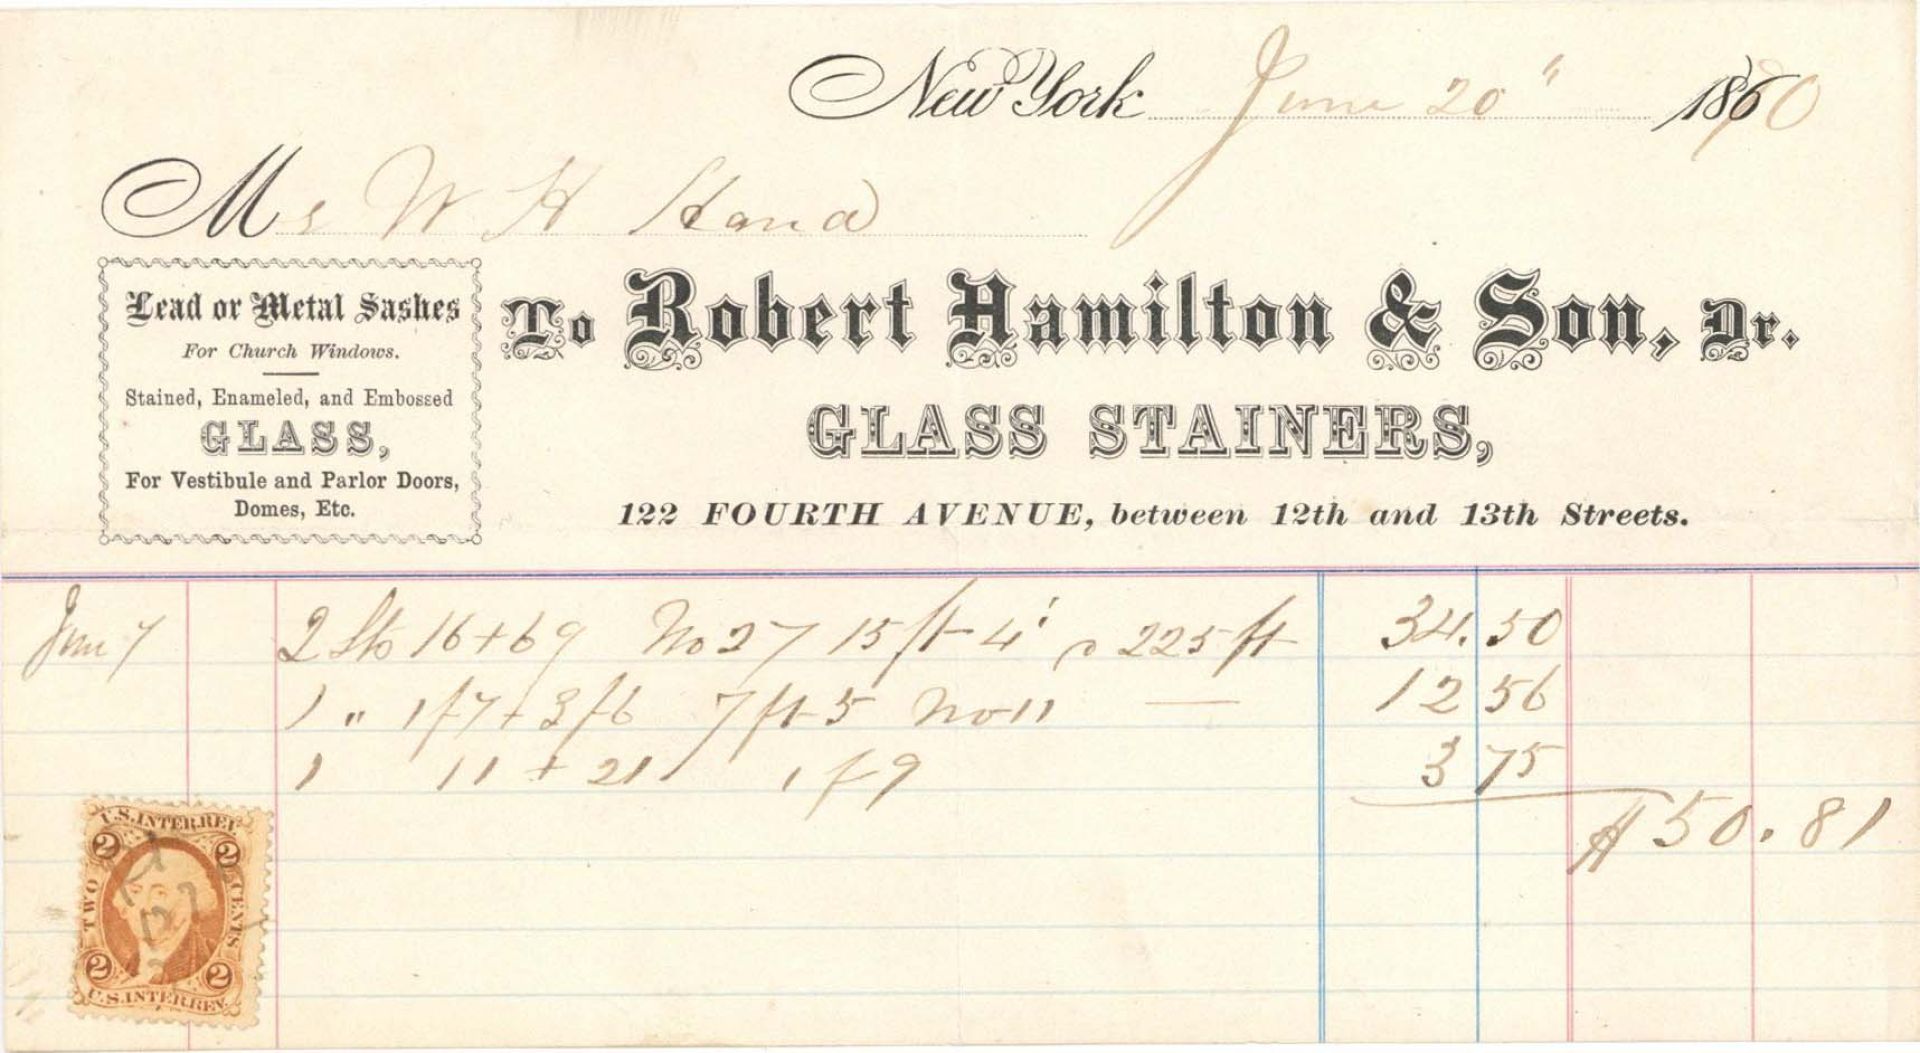 New York June 20" 1870
Mr W H Hand
Lead or Metal Sashes
For Church Windows.
Stained, Enameled, and Embossed
GLASS,
For Vestibule and Parlor Doors,
Domes, Etc.
To Robert Hamilton & Son, Dr.
GLASS STAINERS,
122 FOURTH AVENUE, between 12th and 13th Streets.
June 7 2 16 + 69 No 27 15 ft 4' 225 ft 34.50
1 " 1f7 + 3f6 7 ft 5 No 11 — 12 56
1 11 + 21 1 f 9 3 75
$50.81
U.S. INTER. REV.
2 2
TWO CENTS
2 2
U.S. INTER. REV.